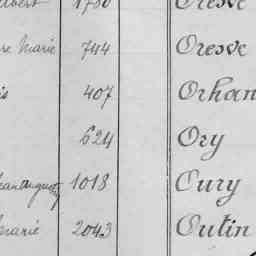 1780 Oresve
re Marie 744 Oresve
is 407 Orhan
624 Ory
Jean august 1018 Oury
marie 2043 Outin